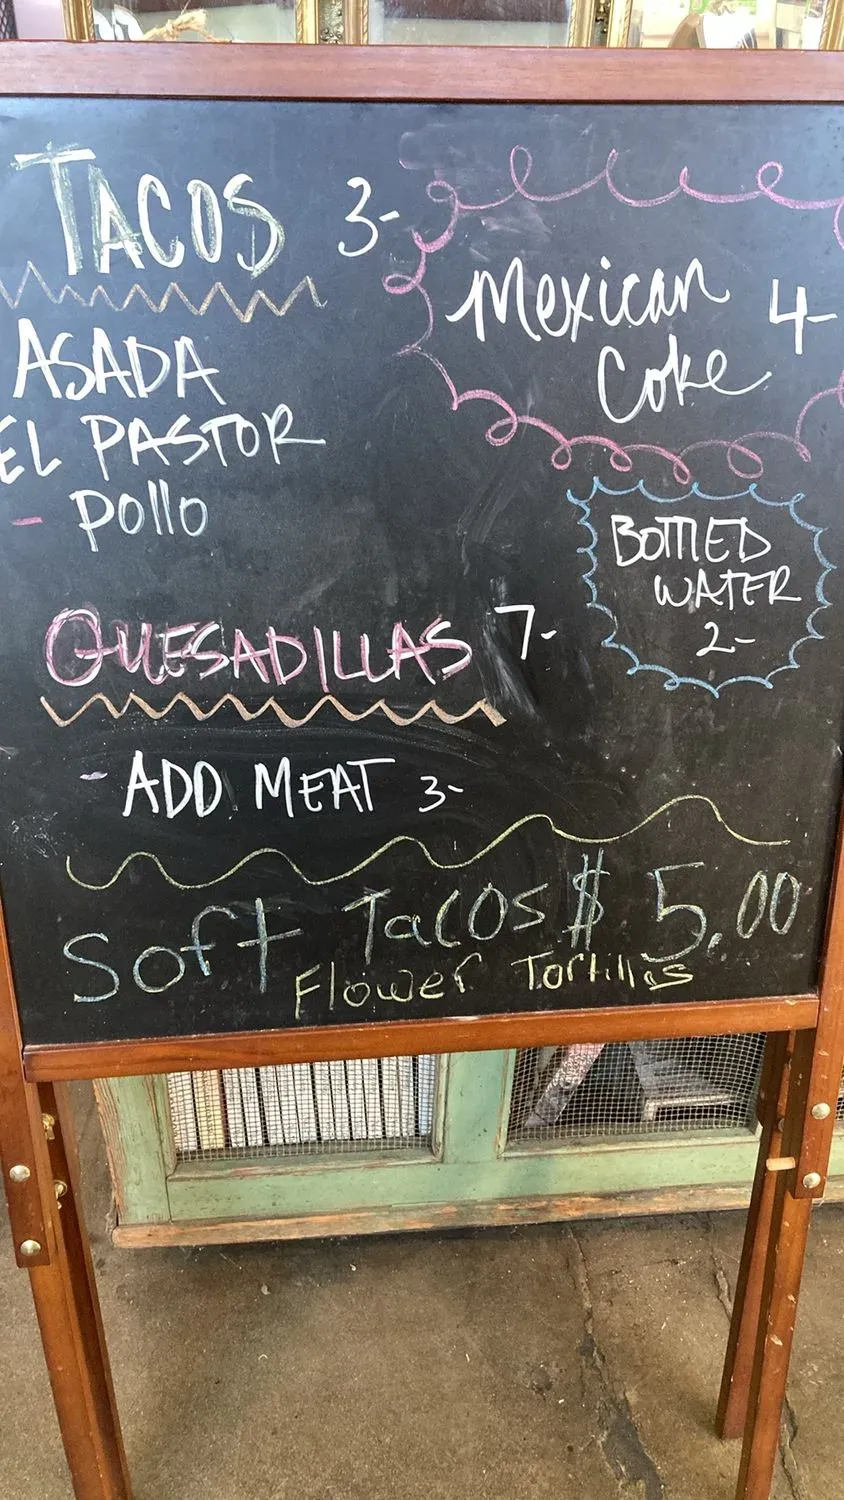 TACOS 3-
ASADA
EL PASTOR
- Pollo
QUESADILLAS 7-
- ADD MEAT 3-
Mexican 4-
Coke
BOTTLED
WATER
2-
Soft Tacos $ 5.00
Flower Tortillas